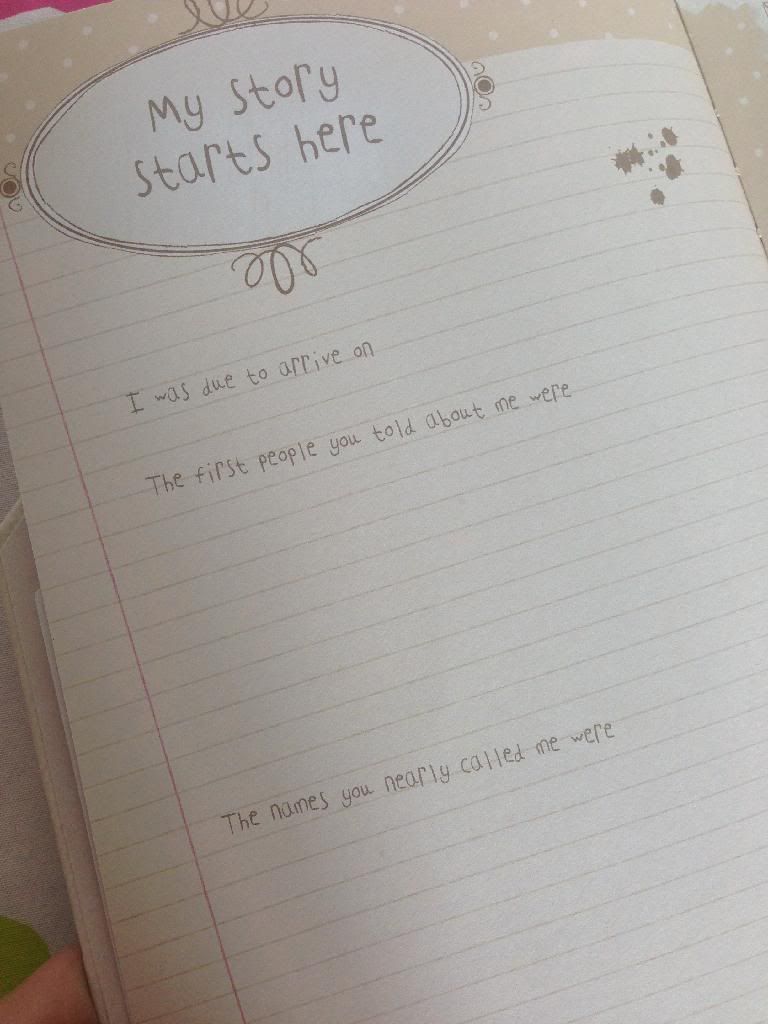 My story
starts here
I was due to arrive on
The first people you told about me were
The names you nearly called me were